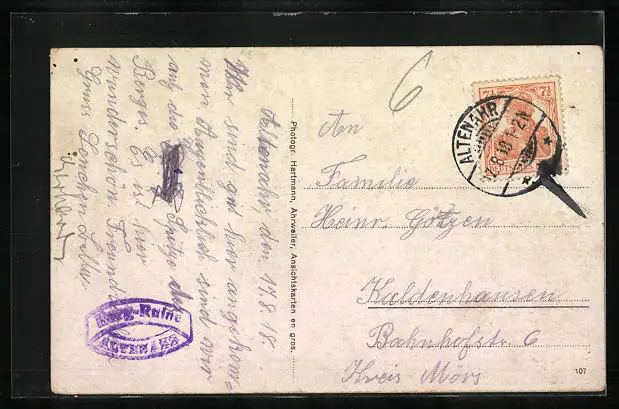 Altenahr, den 17.8.18.
Wir sind gut hier angekom-
men. Augenblicklich sind wir
auf die Spitze des
Berges. Es ist hier
wunderschön. Freundl.
Gruss Lenchen
6
An
Familie
Heinr. Götzen
Kaldenhausen
Bahnhofstr. 6
Kreis Mörs
Photogr. Hartmann, Ahrweiler, Ansichtskarten en gros.
107
7½ 7½
ALTENAHR
8.18.1-2N
Burg-Ruine
ALTENAHR